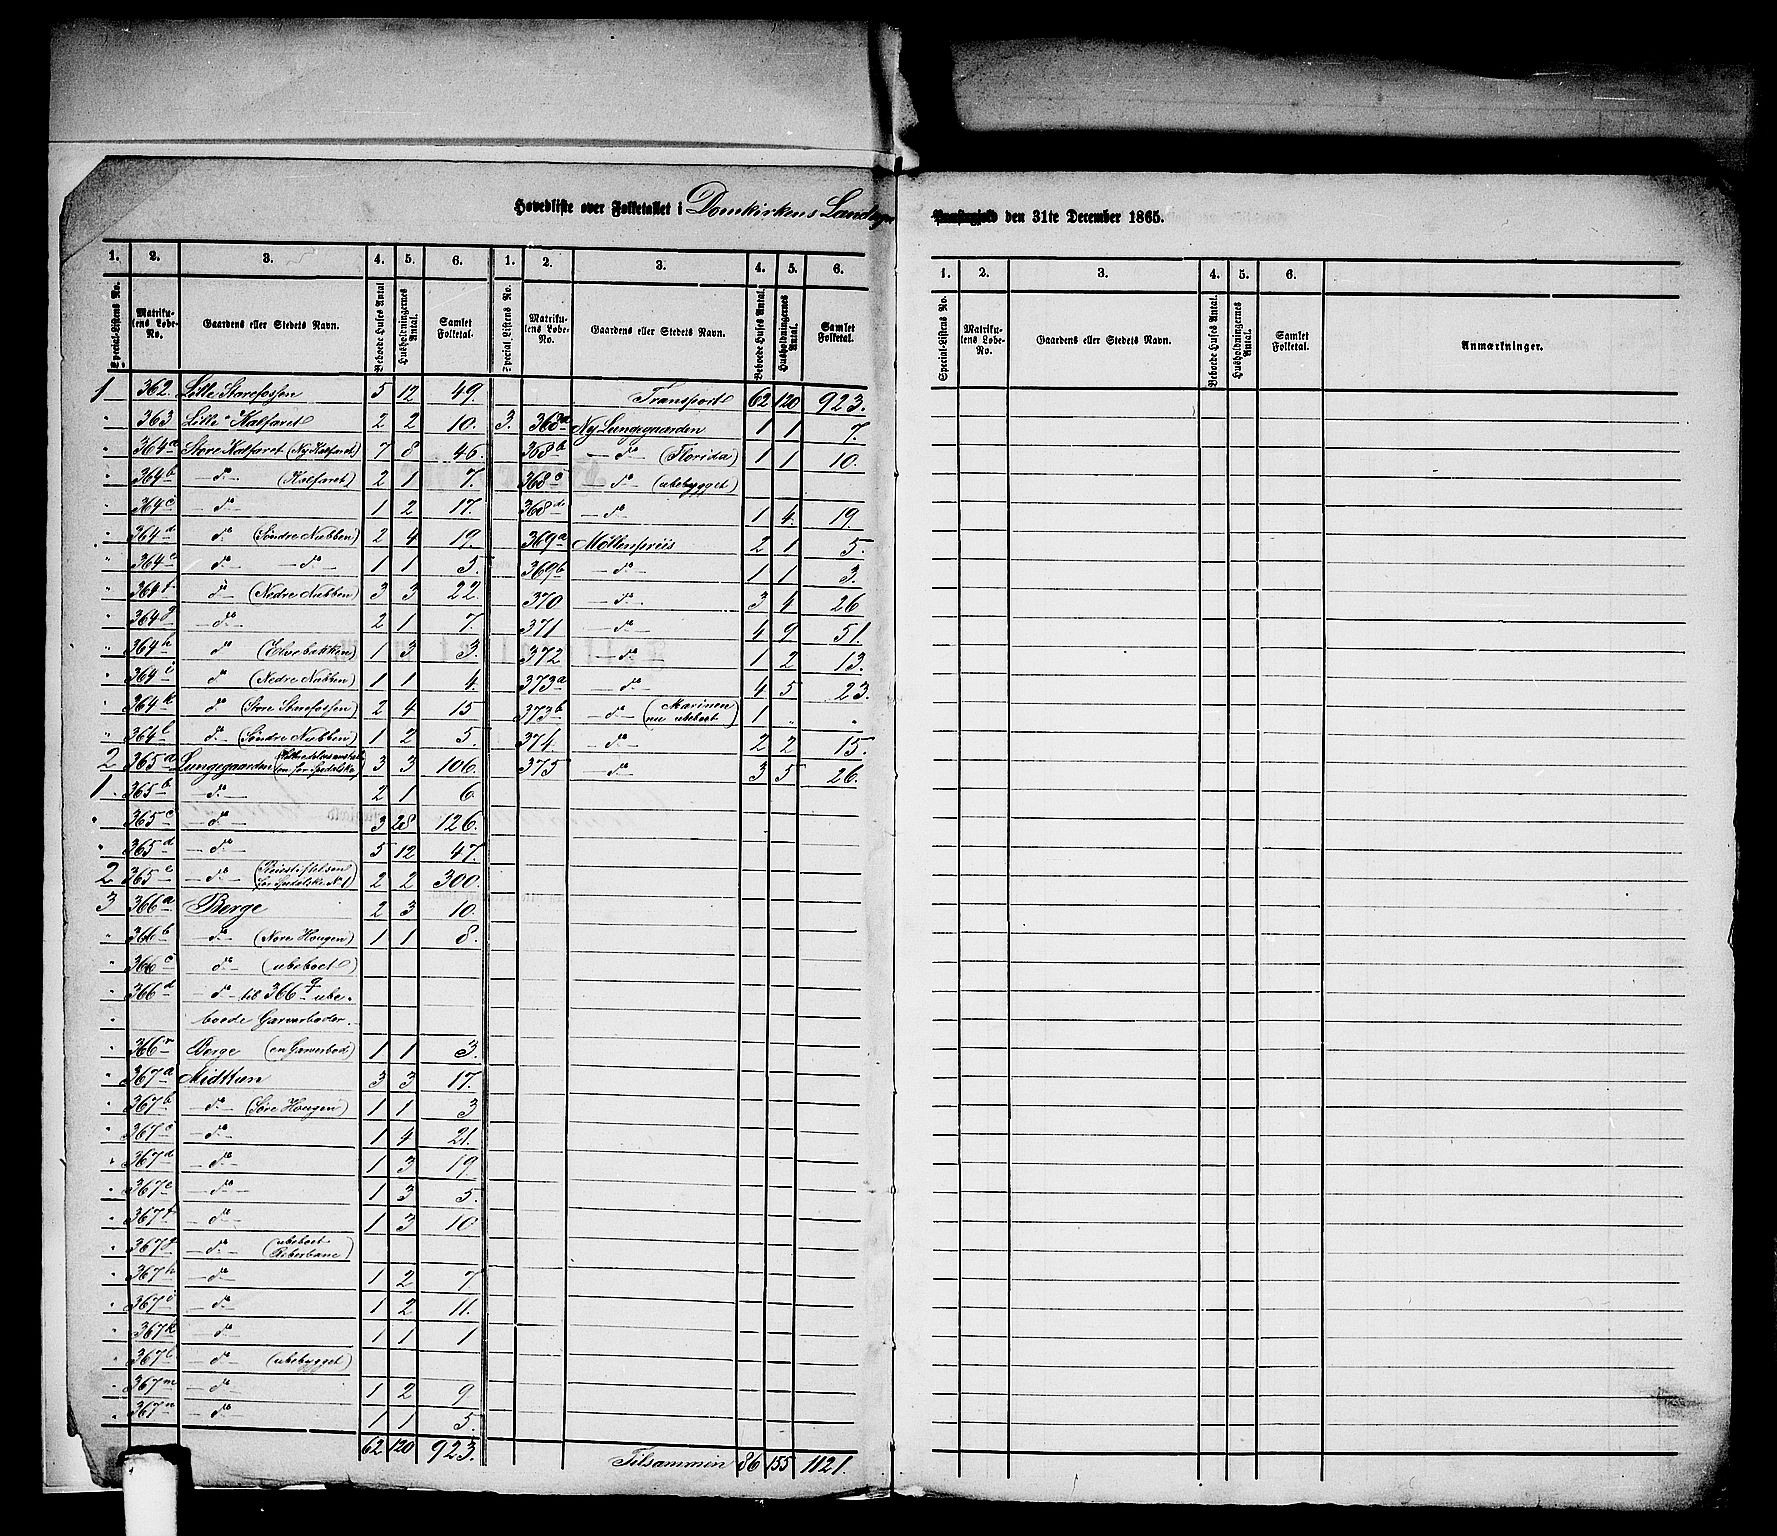 Hovedliste over Folketallet i Domkirkens Landsogn
Præstegjeld den 31te December 1865.
1. 2. 3. 4. 5. 6. 1. 2. 3. 4. 5. 6.
Special-Listens No. Matrikulens Løbe-No. Gaardens eller Stedets Navn. Beboede Huses Antal Husholdningernes Antal. Samlet Folketal. Special Listens No. Matrikulens Løbe-No. Gaardens eller Stedets Navn. Beboede Huses Antal. Husholdningernes Antal. Samlet Folketal.
1 362. Lille Starefossen 5 12 49.
" 363 Lille Kalfaret 2 2 10.
" 364a Store Kalfaret (Ny Kalfaret) 7 8 46.
" 364b -do- (Kalfaret) 2 1 7.
" 364c -do- 1 2 17.
" 364d do (Søndre Nubben) 2 4 19.
" 364e do -do- 1 1 5.
" 364f do (Nedre Nubben) 3 3 22.
" 364g -do- 2 1 7.
" 364h do (Elvebakken) 1 3 3.
" 364i do (Nedre Nubben) 1 1 4.
" 364k do (Store Starefossen) 2 4 15
" 364l do (Søndre Nubben) 1 2 5.
2 365a Lungegaarden 3 3 106.
1. 365b -do- 2 1 6
" 365c -do- 3 28 126.
" 365d -do- 5 12 47.
2 365e -do- (Pleiestiftelsen for Spedalske No 1) 2 2 300.
3 366a Berge 2 3 10.
" 366b do (Nore Hougen) 1 1 8.
" 366c do (ubeboet)
" 366d -do- til 366q ube-
" boede Garverboder.
" 366r Berge (en Garverbod) 1 1 3.
" 367a Midttun 3 3 17.
" 367b -do- (Søre Hougen) 1 1 3
" 367c -do- 1 4 21.
" 367d -do- 1 3 19.
" 367e -do- 1 3 5.
" 367f -do- 1 3 10
" 367g -do- (ubeboet Reberbane)
" 367h -do- 1 2 7
" 367i -do- 1 2 11.
" 367k -do- 1 1 1
" 367l -do- (ubebygget)
" 367m -do- 1 2 9
" 367n -do- 1 1 5.
62 120 923.
Transport 62 120 923.
3. 368a Ny Lungegaarden 1 1 7.
368b -do- (Florida) 1 1 10.
368c do (ubebygget)
368d -do- 1 4. 19.
369a Møllenpriis 2 1 5.
369b -do- 1 1 3.
370 -do- 3 4 26
371 -do- 4 9 51.
372 -do- 1 2 13.
373a -do- 4 5 23.
373b -do- (Marinen nu ubeboet) 1 " "
374. -do- 2 2 15.
375 -do- 3 5 26.
Tilsammen 86 155 1121.
1. 2. 3. 4. 5. 6.
Special-Listens No. Matrikulens Løbe-No. Gaardens eller Stedets Navn. Beboede Huses Antal. Husholdningernes Antal. Samlet Folketal. Anmærkninger.